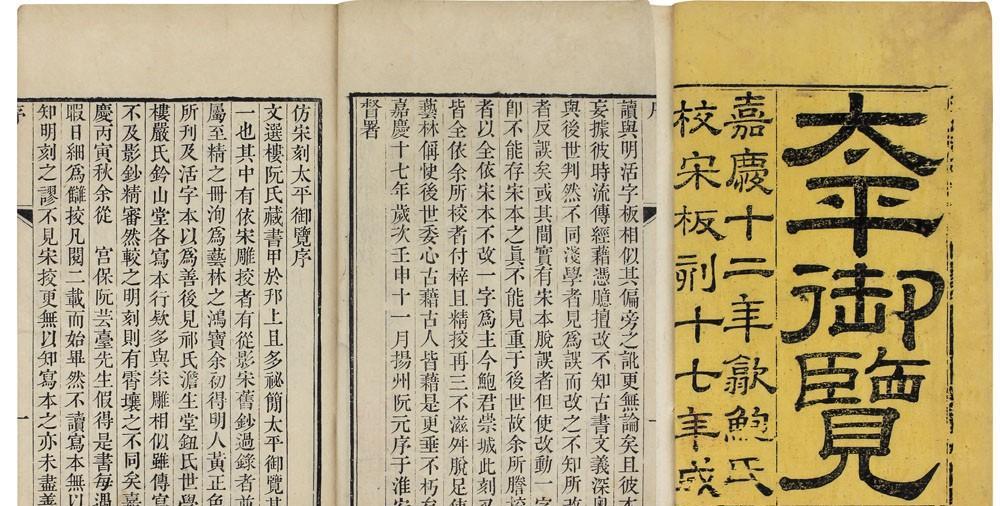 太平御覽
嘉慶十二年歙鮑氏
校宋板刻十七年成
讀與明活字板相似其偏旁之訛更無論矣且彼本
妄據彼時流傳經藉憑臆擅改不知古書文義深奧
與後世判然不同淺學者見爲誤而改之不知所改
者反誤矣或其間實有宋本脫誤者但使改動一字
卽不能存宋本之真不能見重于後世故余所謄挍
者以全依宋本不改一字爲主今鮑君崇城此刻又
皆全依余所挍者付梓且精挍再三不滋舛脫足使
藝林偁快後世委心古藉古人皆藉是更垂不朽矣
嘉慶十七年歲次壬申十一月揚州阮元序于淮安
督署
仿宋刻太平御覽序
文選樓阮氏藏書甲於邗上且多祕簡太平御覽其
一也其中有依宋雕挍者有從影宋舊鈔過錄者前
屬至精之冊洵爲藝林之鴻寶余初得明人黃正色
所刊及活字本以爲善後見祁氏澹生堂鈕氏世學
樓嚴氏鈐山堂各寫本行款多與宋雕相似雖傳寫
不及影鈔精審然較之明刻則有霄壤之不同矣嘉
慶丙寅秋余從 宮保阮芸臺先生假得是書每過
暇日細爲讎挍凡閱二載而始畢然不讀寫本無以
知明刻之謬不見宋挍更無以知寫本之亦未盡善
一